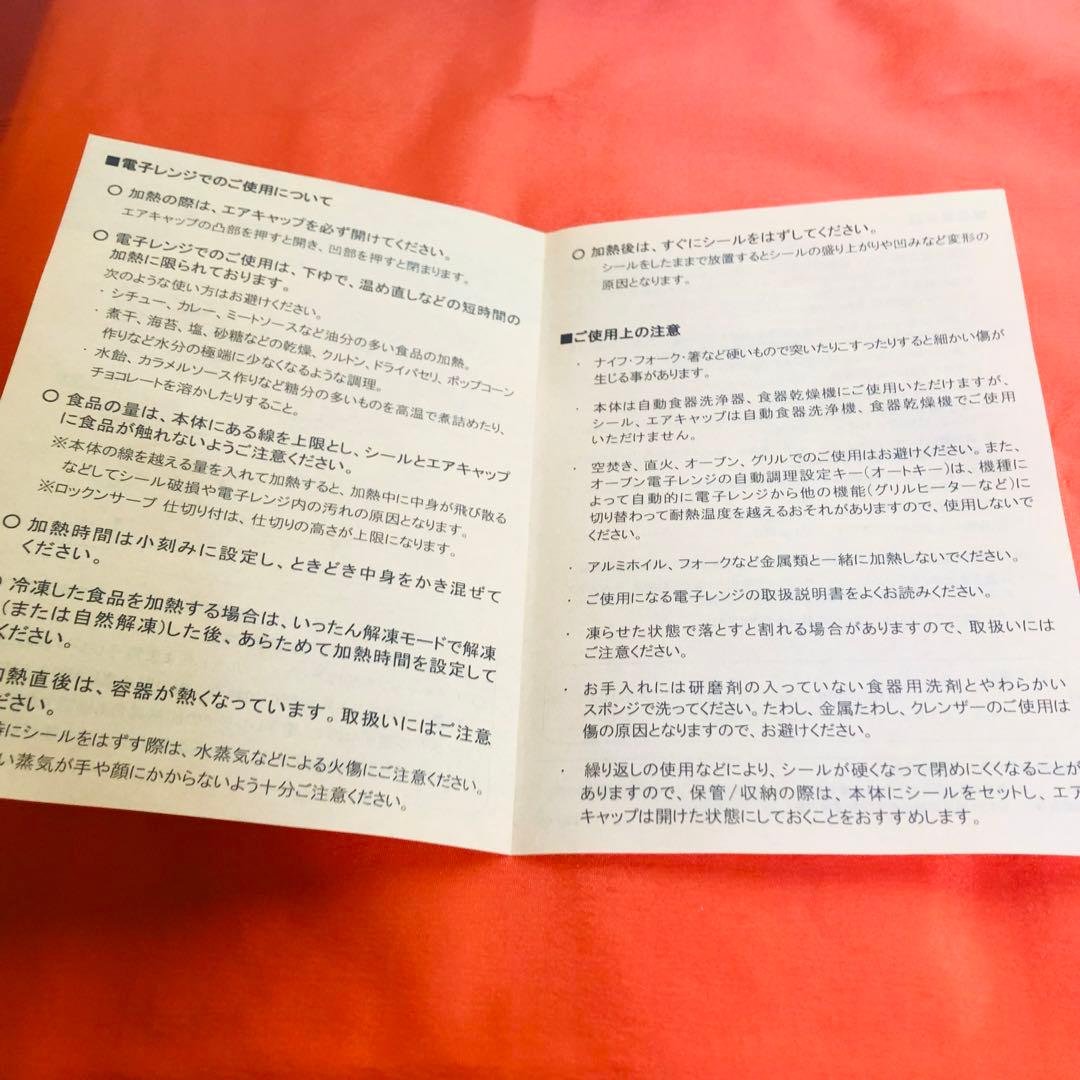 ■電子レンジでのご使用について
○ 加熱の際は、エアキャップを必ず開けてください。
エアキャップの凸部を押すと開き、凹部を押すと閉まります。
○ 電子レンジでのご使用は、下ゆで、温め直しなどの短時間の
加熱に限られております。
次のような使い方はお避けください。
・シチュー、カレー、ミートソースなど油分の多い食品の加熱。
・煮干、海苔、塩、砂糖などの乾燥、クルトン、ドライパセリ、ポップコーン
作りなど水分の極端に少なくなるような調理。
・水飴、カラメルソース作りなど糖分の多いものを高温で煮詰めたり、
チョコレートを溶かしたりすること。
○ 食品の量は、本体にある線を上限とし、シールとエアキャップ
に食品が触れないようご注意ください。
※本体の線を越える量を入れて加熱すると、加熱中に中身が飛び散る
などしてシール破損や電子レンジ内の汚れの原因となります。
※ロックンサーブ 仕切り付は、仕切りの高さが上限になります。
○ 加熱時間は小刻みに設定し、ときどき中身をかき混ぜて
ください。
冷凍した食品を加熱する場合は、いったん解凍モードで解凍
(または自然解凍)した後、あらためて加熱時間を設定して
ください。
熱直後は、容器が熱くなっています。取扱いにはご注意
ださい。
にシールをはずす際は、水蒸気などによる火傷にご注意ください。
い蒸気が手や顔にかからないよう十分ご注意ください。
○ 加熱後は、すぐにシールをはずしてください。
シールをしたままで放置するとシールの盛り上がりや凹みなど変形の
原因となります。
■ご使用上の注意
・ ナイフ・フォーク・箸など硬いもので突いたりこすったりすると細かい傷が
生じる事があります。
・ 本体は自動食器洗浄器、食器乾燥機にご使用いただけますが、
シール、エアキャップは自動食器洗浄機、食器乾燥機でご使用
いただけません。
・ 空焚き、直火、オーブン、グリルでのご使用はお避けください。また、
オーブン電子レンジの自動調理設定キー(オートキー)は、機種に
よって自動的に電子レンジから他の機能(グリルヒーターなど)に
切り替わって耐熱温度を越えるおそれがありますので、使用しないで
ください。
・ アルミホイル、フォークなど金属類と一緒に加熱しないでください。
・ ご使用になる電子レンジの取扱説明書をよくお読みください。
・ 凍らせた状態で落とすと割れる場合がありますので、取扱いには
ご注意ください。
・ お手入れには研磨剤の入っていない食器用洗剤とやわらかい
スポンジで洗ってください。たわし、金属たわし、クレンザーのご使用は
傷の原因となりますので、お避けください。
・ 繰り返しの使用などにより、シールが硬くなって閉めにくくなることが
ありますので、保管/収納の際は、本体にシールをセットし、エア
キャップは開けた状態にしておくことをおすすめします。